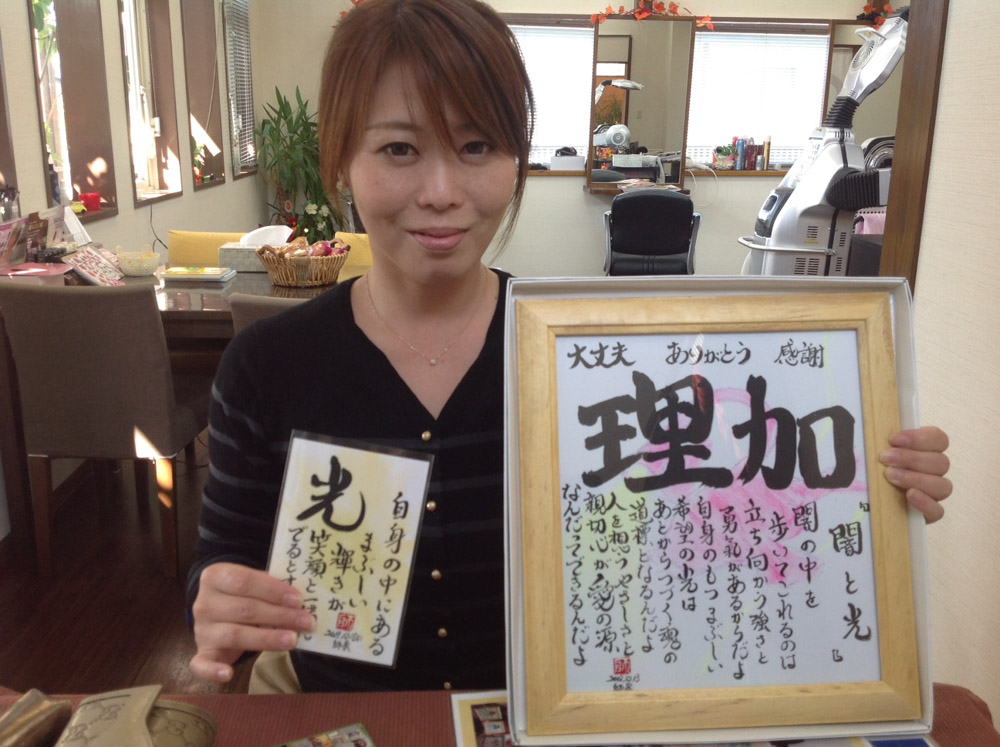 光
自身の中にある
まぶしい
輝きが
笑顔と一
でるとす
大丈夫 ありがとう 感謝
理加
『闇と光』
闇の中を
歩いてこれるのは
立ち向かう強さと
勇氣があるからだよ
自身のもつまぶしい
希望の光は
あとからつづく魂の
道標となるんだよ
人を想うやさしさと
親切心が愛の源
なんだってできるんだよ